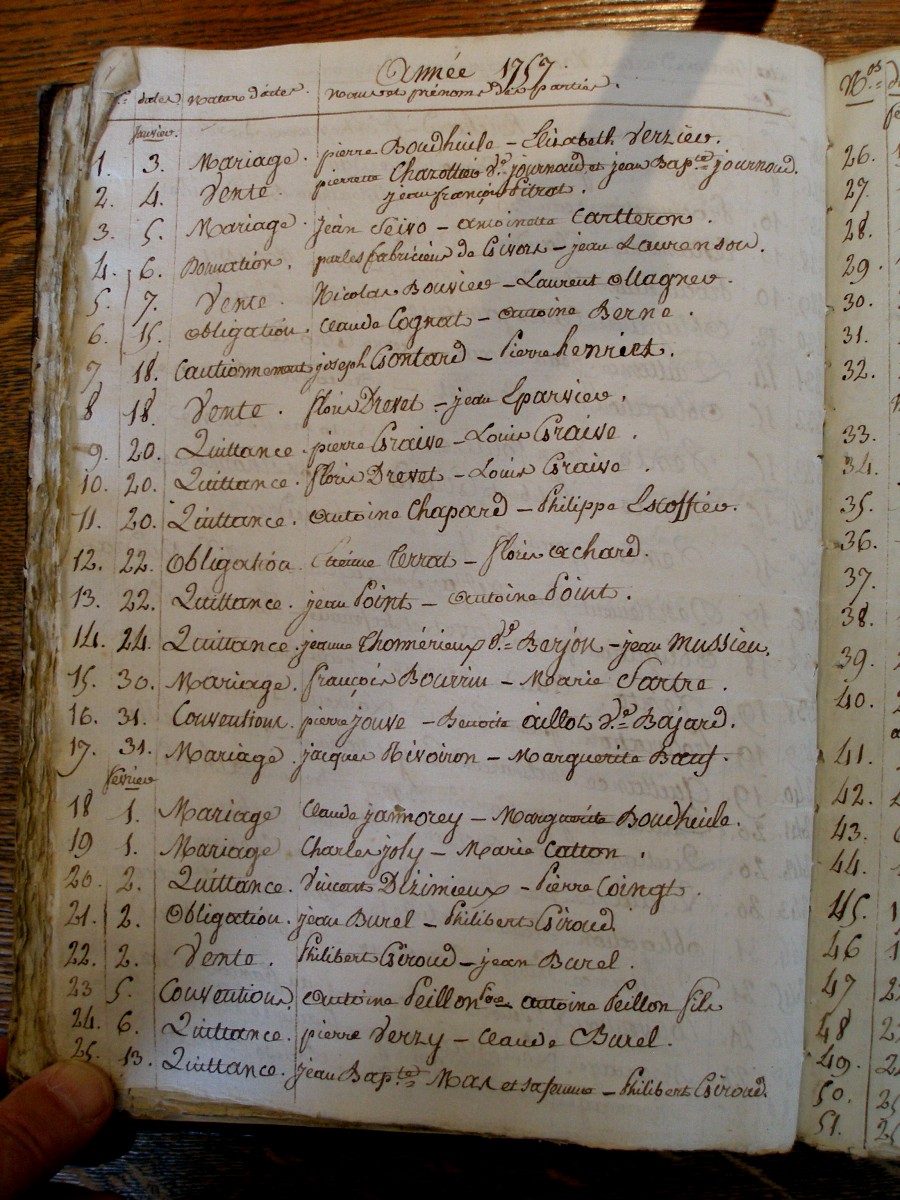 Année 1757.
N.os dates Nature d'actes. Noms et prénoms des parties.
janvier.
1. 3. Mariage. pierre Boudhuile – Elizabeth Verzier.
2. 4. Vente. pierrette Charottier v.e journoud et jean Bap.te journoud.
jean françois Pitrat.
3. 5. Mariage. jean Seivo – antoinette Cartteron.
4. 6. Donnation. par les fabriciens de Givors – jean Laurenson.
5. 7. Vente. Nicolas Bouvier – Laurent Magner.
6. 15. Obligation. Claude Cognat – Antoine Berne.
7. 18. Cautionnement joseph Gontard – Pierre henriet.
8 18. Vente. floris Drevet – jean Eparvier.
9. 20. Quittance pierre Graise – Louis Graise.
10. 20. Quittance. floris Drevet – Louis Graise.
11. 20. Quittance. Antoine Chapard – Philippe Escoffier.
12. 22. Obligation. Etienne Terrat – floris Achard.
13. 22. Quittance. jean Point – Antoine Point.
14. 24. Quittance. jeanne Thomérieux v.e Barjon – jean Mussieu.
15. 30. Mariage. françois Bourrin – Marie Sartre.
16. 31. Conventions. pierre jouve – Benoite aillot v.e Bajard.
17. 31. Mariage. jacques Rivoiron – Marguerite Bœuf.
février
18 1. Mariage Claude jamorey – Marguerite Boudhuile.
19 1. Mariage Charles joly – Marie Catton.
20. 2. Quittance. Vincent Dézimieux – Pierre Coingt.
21. 2. Obligation. jean Burel – Philibert Giroud.
22. 2. Vente. Philibert Giroud – jean Burel.
23 5. Conventions. Antoine Peillon père antoine Peillon fils
24. 6. Quittance. pierre Verzy – Claude Burel.
25. 13. Quittance. jean Bap.te Mas et sa femme – Philibert Giroud.
N.os
26.
27.
28.
29.
30.
31.
32.
33.
34.
35.
36.
37.
38.
39.
40.
41.
42.
43.
44.
45.
46
47
48
49.
50.
51.